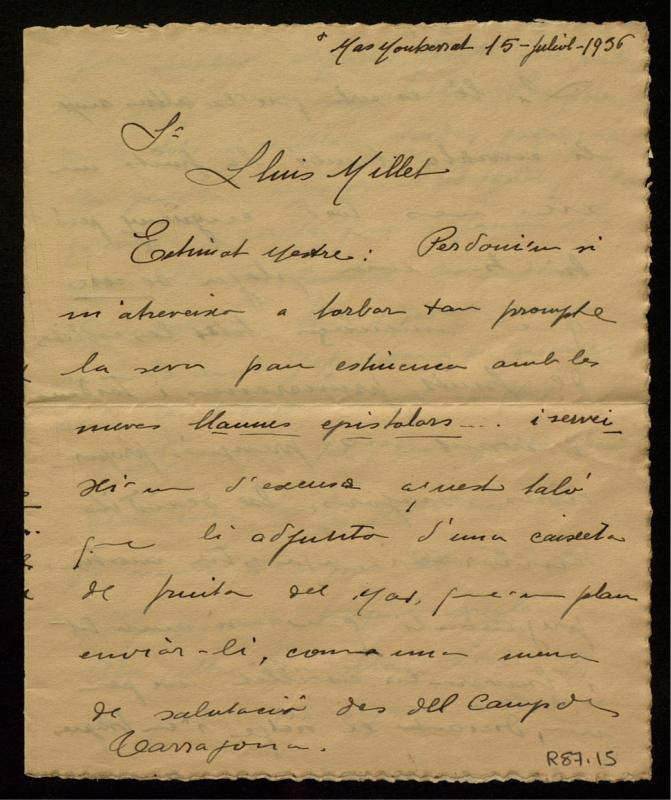 Mas Montserrat 15-juliol-1936
Sr.
Lluis Millet
Estimat Mestre: Perdoni'm si
m'atreveixo a torbar tan prompte
la seva pau estiuenca amb les
meves llaunes epistolars... i servei
xi'm d'excusa aquest taló
que li adjunto d'una caixeta
de fruita del Mas, que'm plau
enviàr-li, com a una mena
de salutació des del Camp de
Tarragona.
R87.15